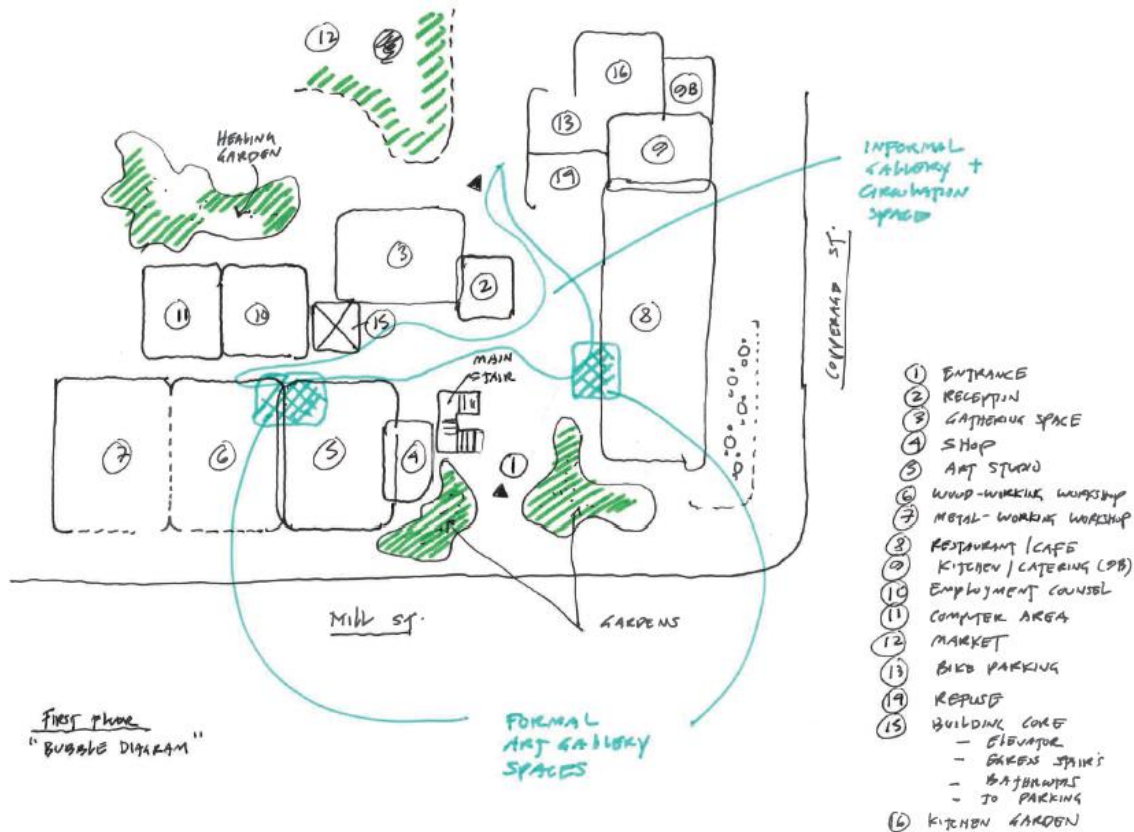 12
16
9B
13
9
14
HEALING
GARDEN
INFORMAL
GALLERY +
CIRCULATION
SPACE
3
2
11
10
15
8
COPPERAGE ST.
MAIN
STAIR
7
6
5
4
1
MILL ST.
GARDENS
FIRST FLOOR
"BUBBLE DIAGRAM"
FORMAL
ART GALLERY
SPACES
1 ENTRANCE
2 RECEPTION
3 GATHERING SPACE
4 SHOP
5 ART STUDIO
6 WOOD-WORKING WORKSHOP
7 METAL-WORKING WORKSHOP
8 RESTAURANT/CAFE
9 KITCHEN/CATERING (9B)
10 EMPLOYMENT COUNSEL
11 COMPUTER AREA
12 MARKET
13 BIKE PARKING
14 REFUSE
15 BUILDING CORE
- ELEVATOR
- EGRESS STAIRS
- BATHROOMS
- TO PARKING
16 KITCHEN GARDEN